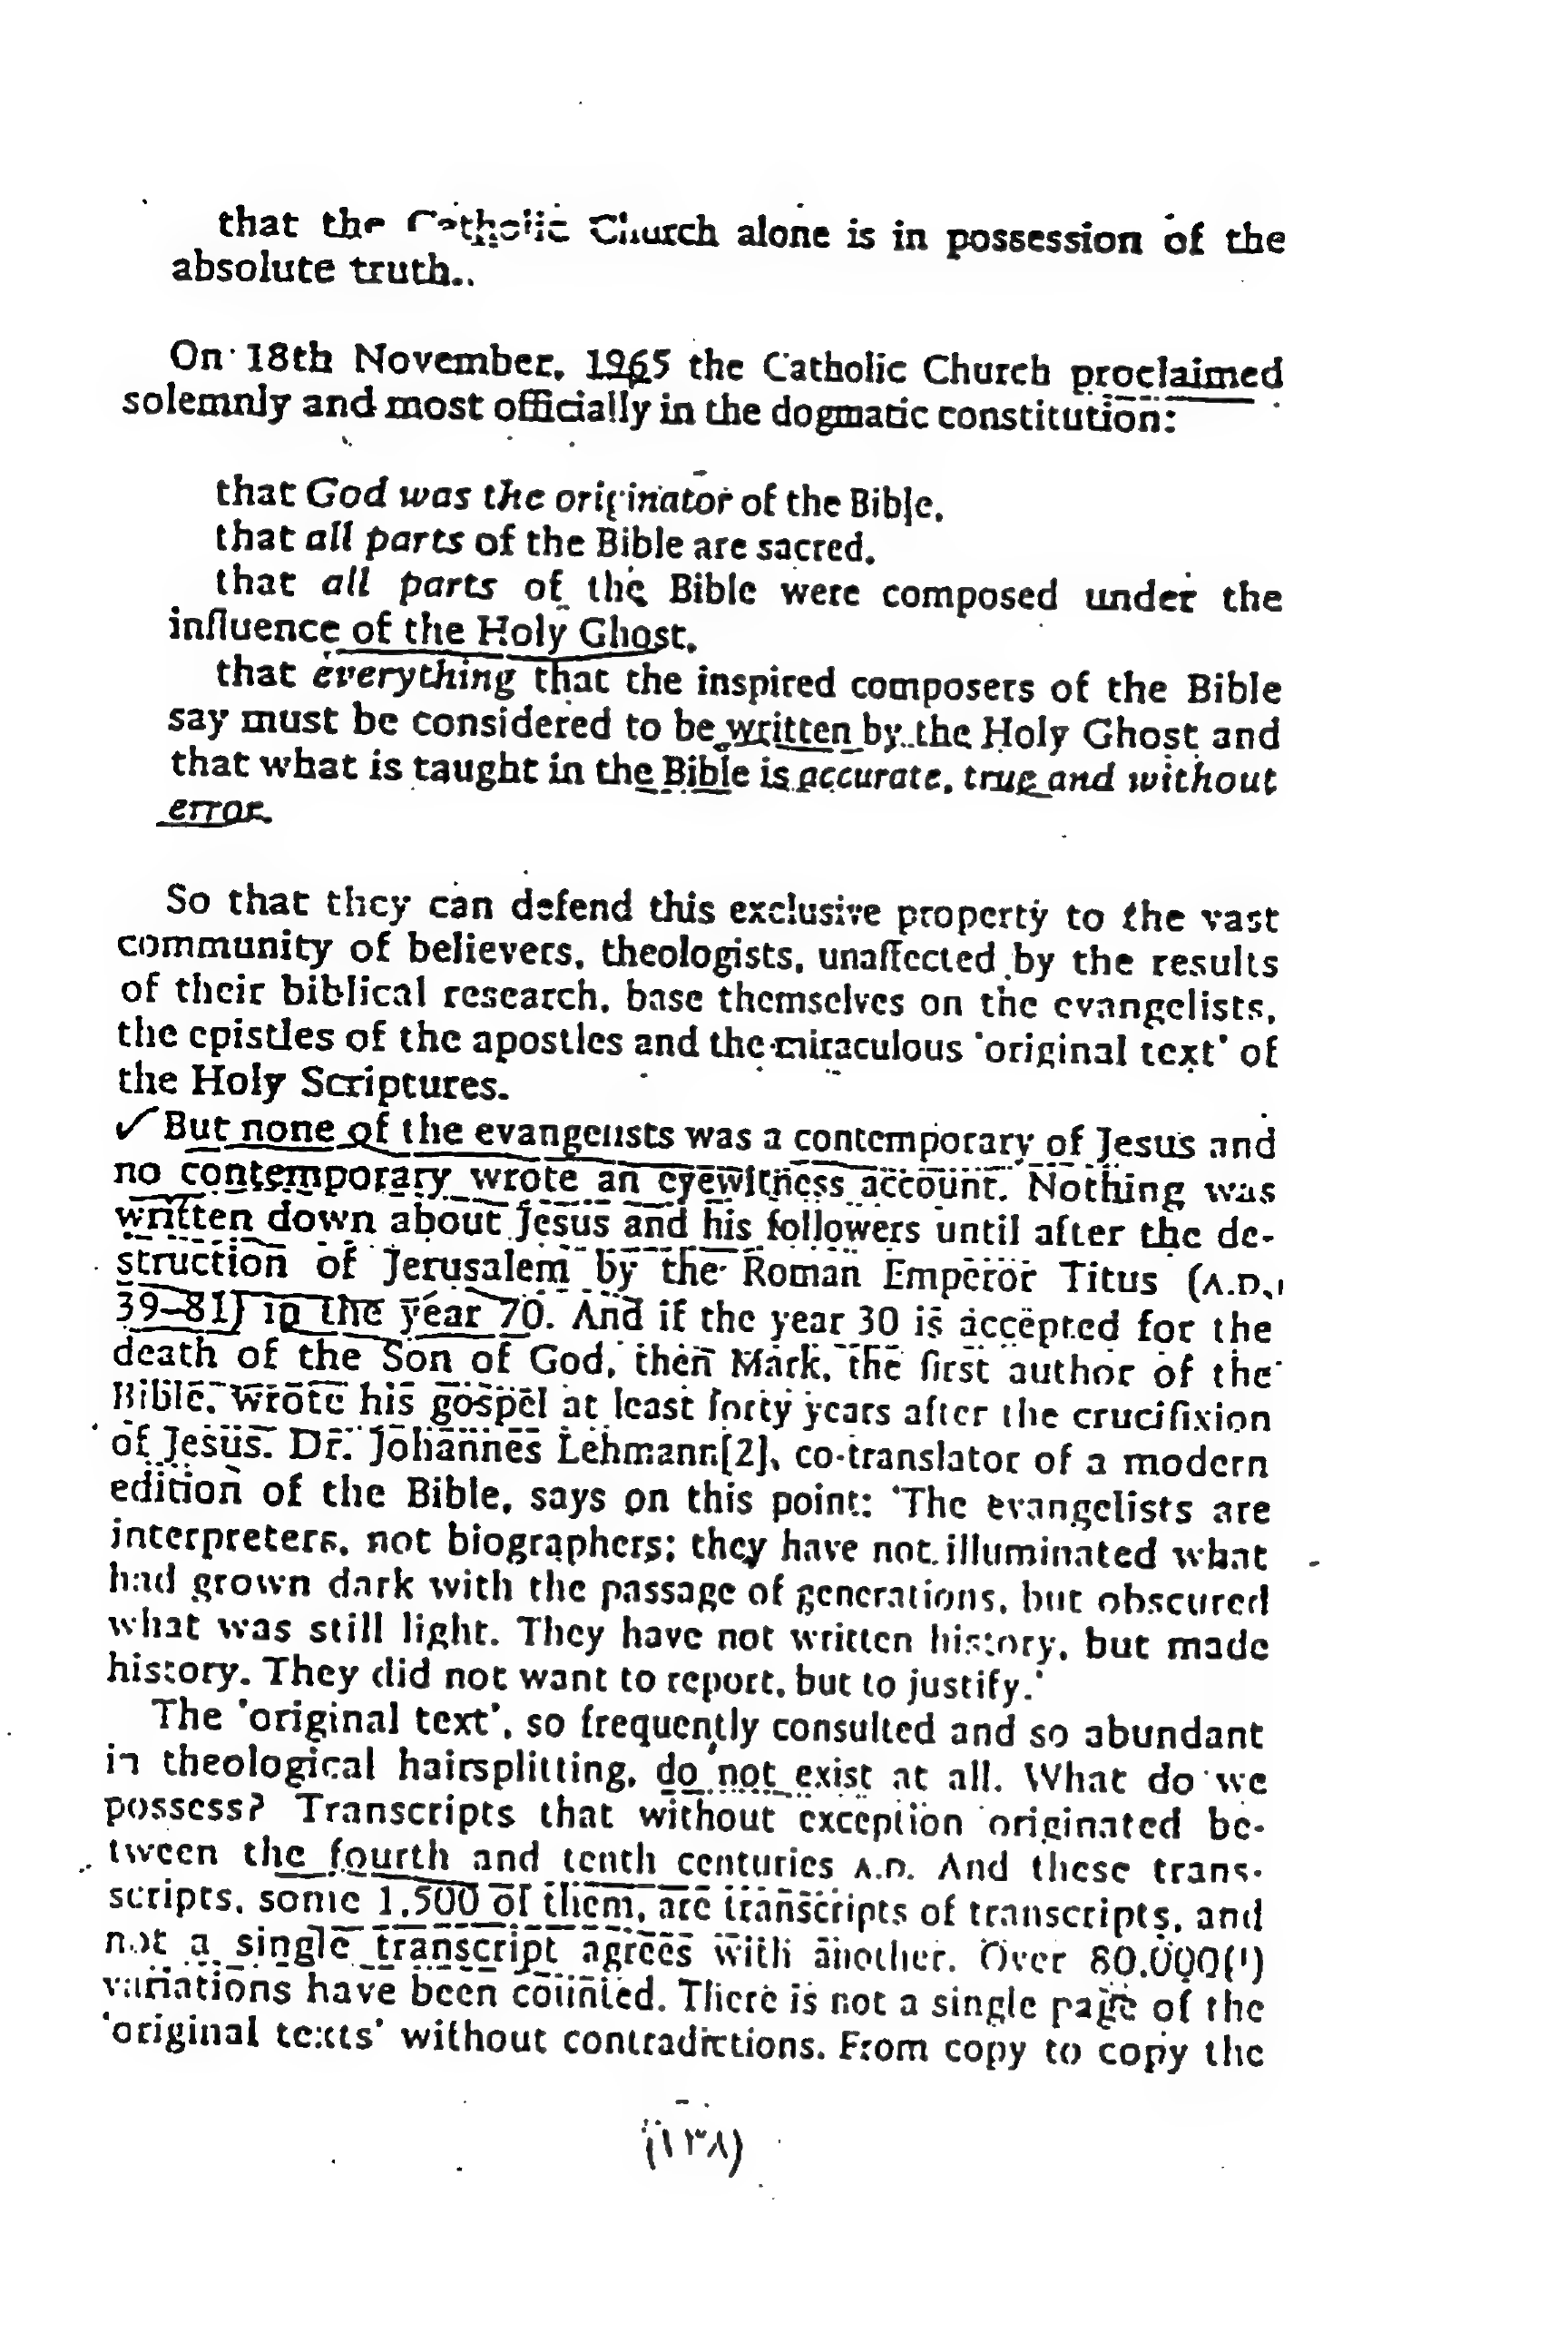 that the Catholic Church alone is in possession of the
absolute truth.
On 18th November, 1965 the Catholic Church proclaimed
solemnly and most officially in the dogmatic constitution:
that God was the originator of the Bible.
that all parts of the Bible are sacred.
that all parts of the Bible were composed under the
influence of the Holy Ghost.
that everything that the inspired composers of the Bible
say must be considered to be written by the Holy Ghost and
that what is taught in the Bible is accurate, true and without
error.
So that they can defend this exclusive property to the vast
community of believers, theologists, unaffected by the results
of their biblical research, base themselves on the evangelists,
the epistles of the apostles and the miraculous 'original text' of
the Holy Scriptures.
✓ But none of the evangelists was a contemporary of Jesus and
no contemporary wrote an eyewitness account. Nothing was
written down about Jesus and his followers until after the de-
struction of Jerusalem by the Roman Emperor Titus (A.D.
39–81) in the year 70. And if the year 30 is accepted for the
death of the Son of God, then Mark, the first author of the
Bible, wrote his gospel at least forty years after the crucifixion
of Jesus. Dr. Johannes Lehmann[2], co-translator of a modern
edition of the Bible, says on this point: 'The evangelists are
interpreters, not biographers; they have not illuminated what
had grown dark with the passage of generations, but obscured
what was still light. They have not written history, but made
history. They did not want to report, but to justify.'
The 'original text', so frequently consulted and so abundant
in theological hairsplitting, do not exist at all. What do we
possess? Transcripts that without exception originated be-
tween the fourth and tenth centuries A.D. And these trans-
scripts, some 1,500 of them, are transcripts of transcripts, and
not a single transcript agrees with another. Over 80,000(!)
variations have been counted. There is not a single page of the
'original texts' without contradictions. From copy to copy the
(١٣٨)